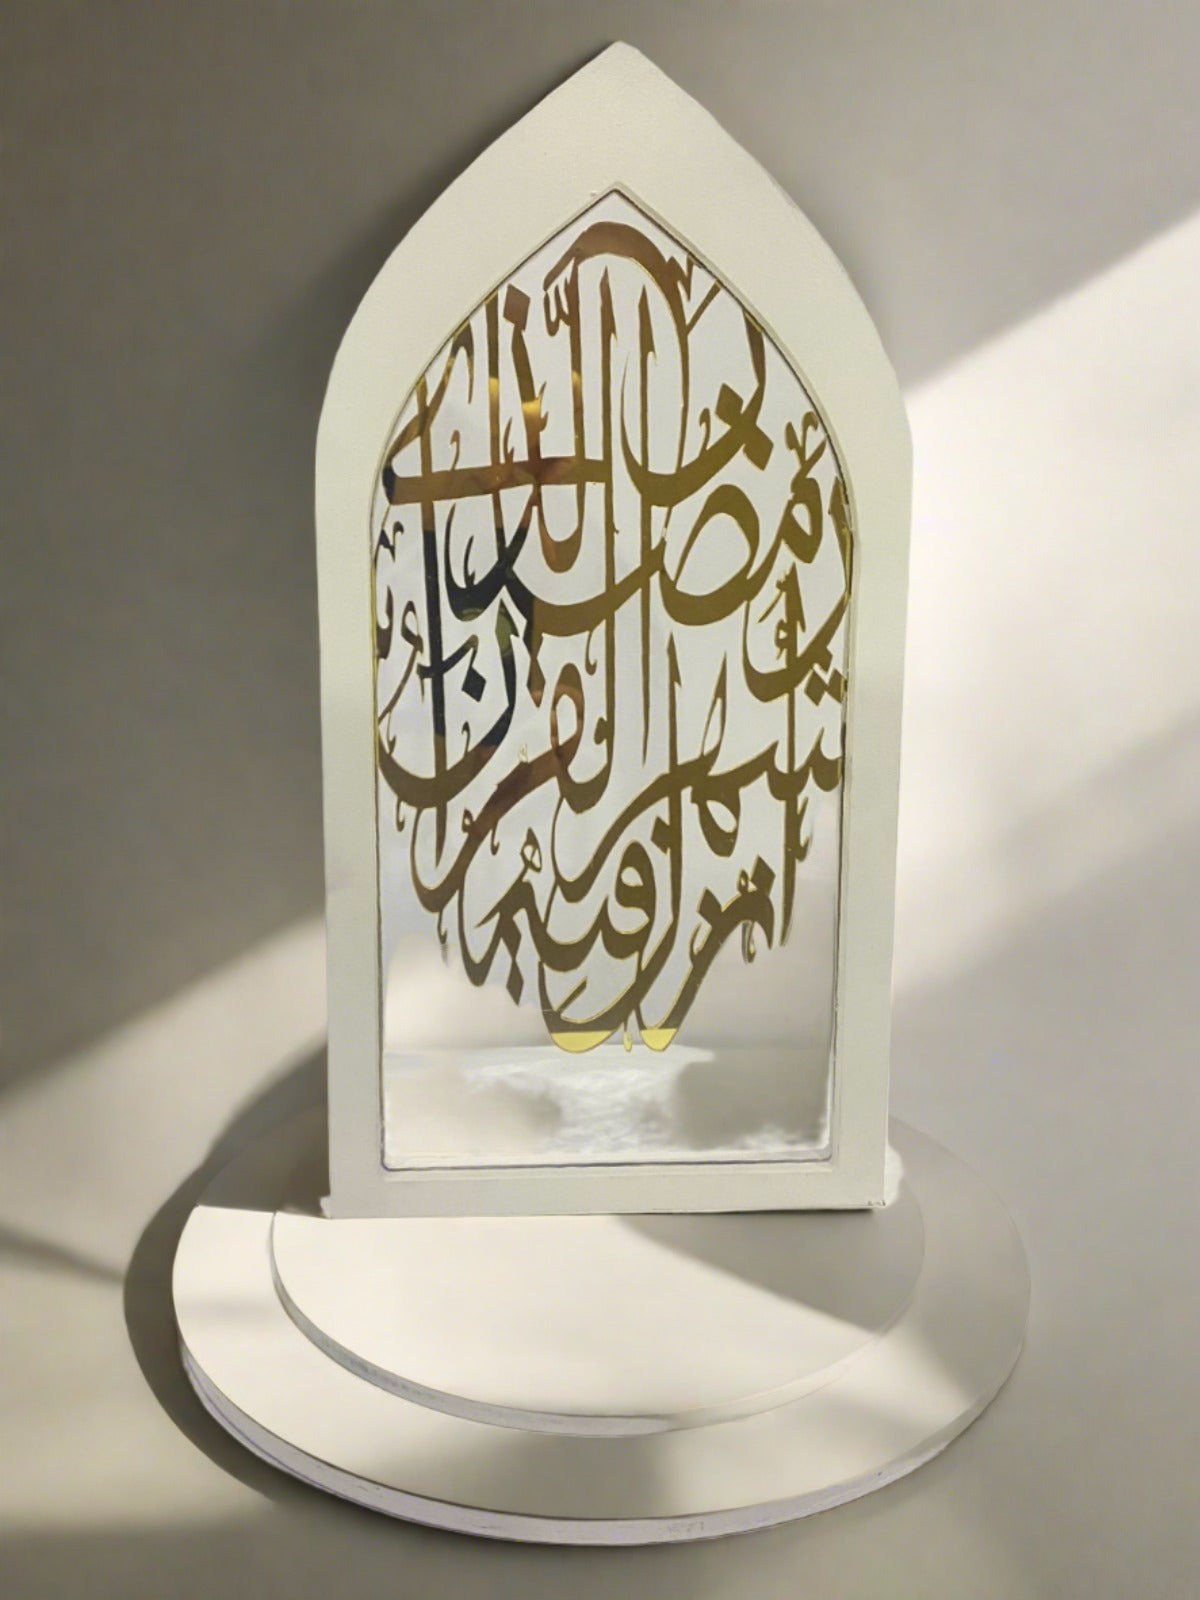 شهر رمضان الذي
أنزل فيه القرآن